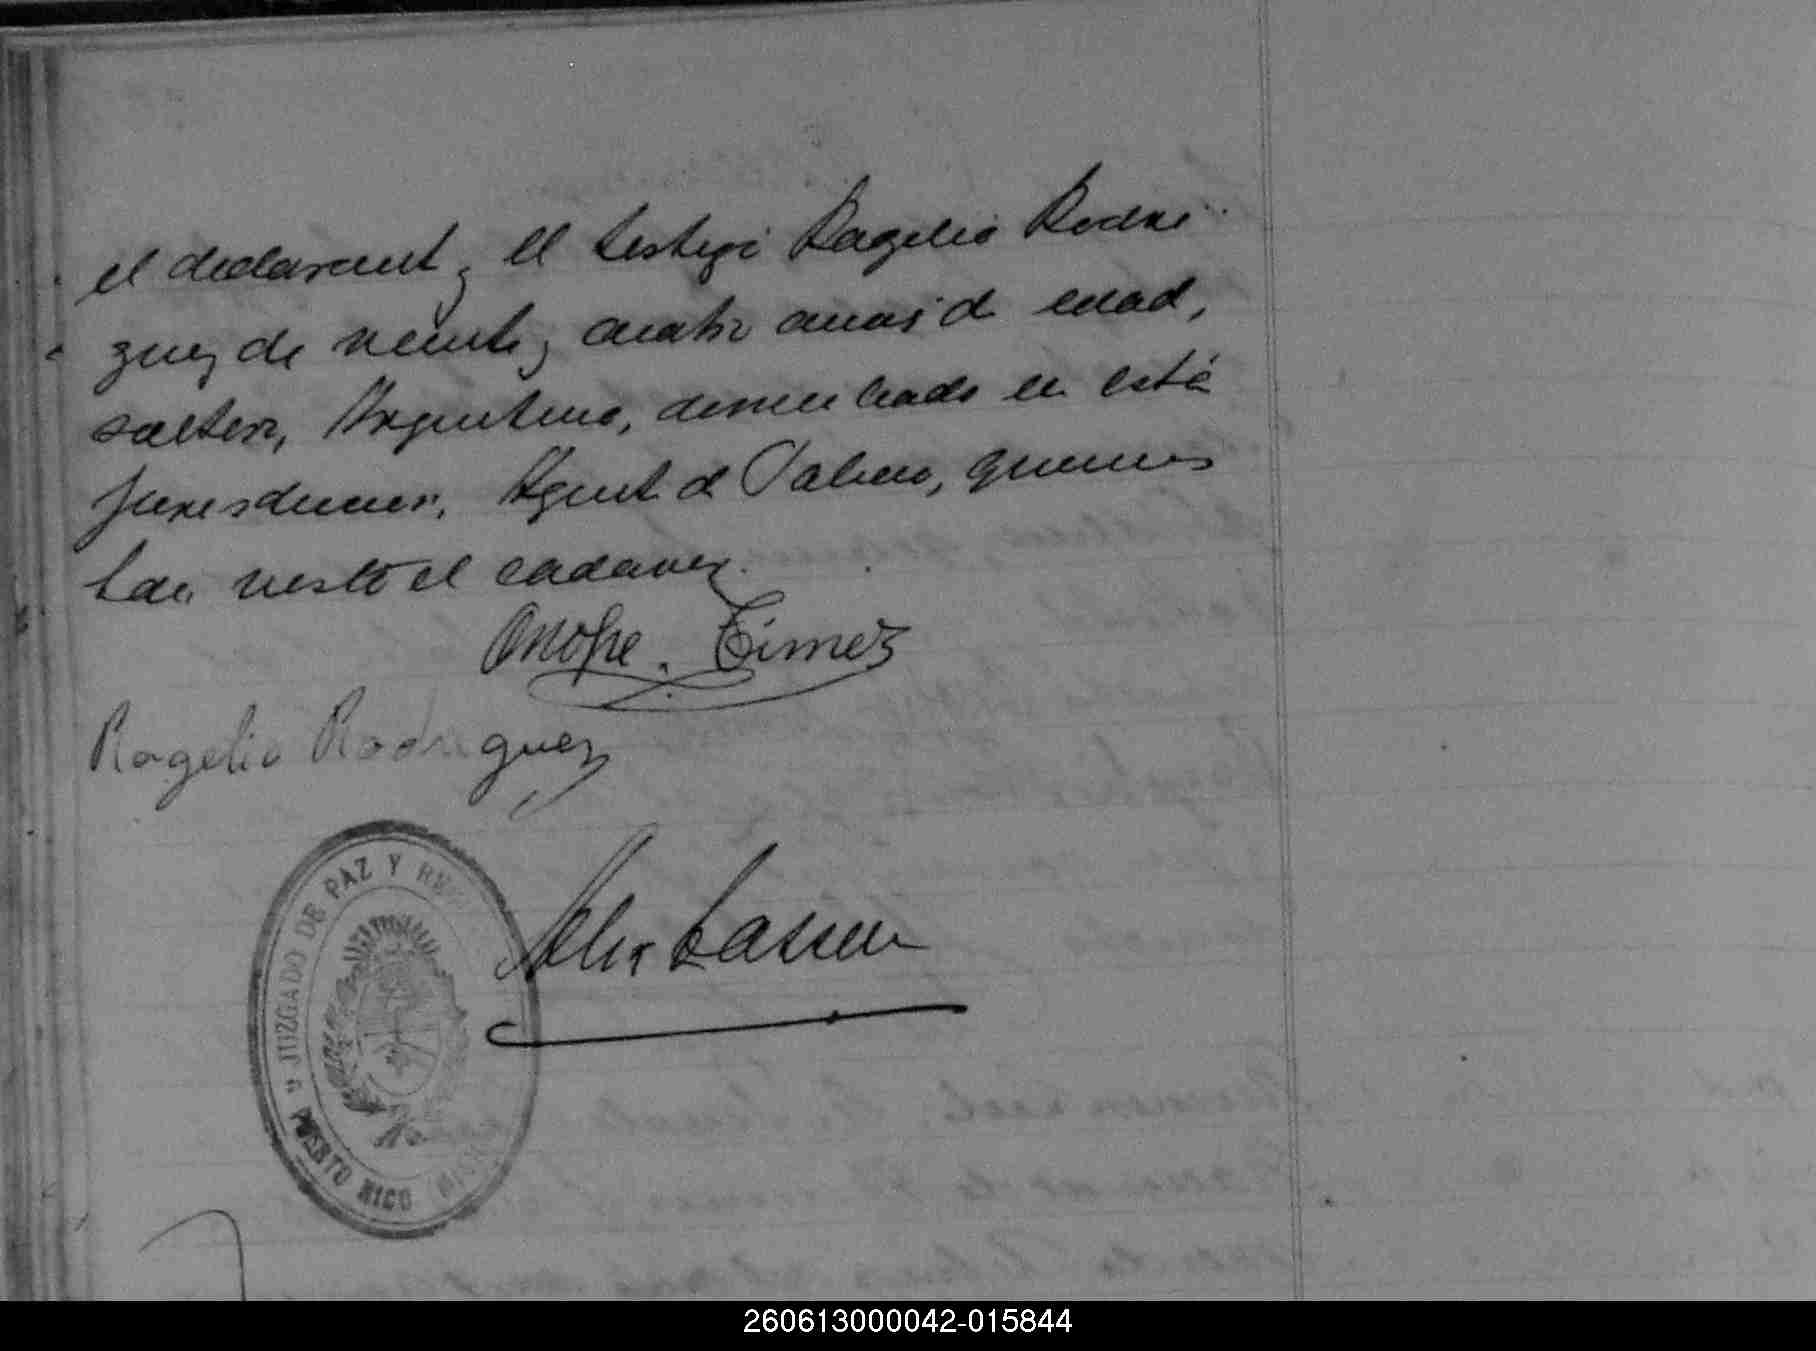 el declarant y el testigo Rogelio Rodri
guez de veinte y cuatro años de edad,
soltero, Argentino, domiciliado en esta
jurisdiccion, Agent de Policia, quienes
han visto el cadaver.
Onofre Gimez
Rogelio Rodriguez
JUZGADO DE PAZ Y RE
PUERTO RICO (MISI
260613000042-015844